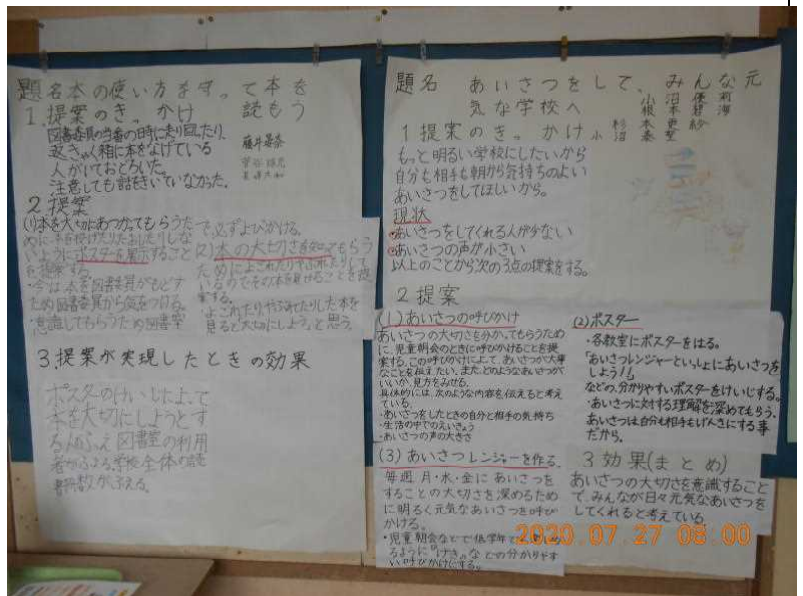 題名本の使い方を守って本を
読もう
1.提案のきっかけ
図書委員の当番の時に走り回ったり、
返きゃく箱に本をなげている
人がいておどろいた。
注意しても話をきいていなかった。
2 提案
(1)本を大切にあつかってもらうた
めに、本を投げたりたおしたりしな
いようにポスターを展示すること
を提案する。
・今は本を図書委員がもどす
ため図書委員から気をつける。
・意識してもらうため図書室
で必ずよびかける。
(2)本の大切さを知ってもらう
ためによごれたりやぶれたりして
いるのでその本を見せることを提
案する。
よごれたり、やぶれたりした本を
見ると大切にしよう。と思う。
3.提案が実現したときの効果
ポスターのけいじした上で
本を大切にしようとす
る人がふえ図書室の利用
者がふえる。学校全体の読
書数がふえる。
題名 あいさつをして、みんな元
気な学校へ
1 提案のきっかけ
もっと明るい学校にしたいから
自分も相手も朝から気持ちのよい
あいさつをしてほしいから。
現状
①あいさつをしてくれる人が少ない
②あいさつの声が小さい
以上のことから次の3点の提案をする。
2 提案
(1)あいさつの呼びかけ
あいさつの大切さを分かってもらうため
に、児童朝会のときに呼びかけることを提
案する。これによって、あいさつが大事
なことを伝えたい。また、どのようなあいさつが
いいか、見方をみせる。
具体的には、次のような内容を伝えると考え
ている。
・あいさつをしたときの自分と相手の気持ち
・生活の中でのえいきょう
・あいさつの声の大きさ
(2)ポスター
・各教室にポスターをはる。
「あいさつレンジャーといっしょにあいさつを
しよう!」
などの、分かりやすいポスターをけいじする。
・あいさつに対する理解を深めてもらう。
あいさつは自分も相手もげんきにする事
だから。
(3)あいさつレンジャーを作る
毎週月・水・金にあいさつを
することの大切さを深めるため
に明るく元気なあいさつを呼び
かける。
・児童朝会などで低学年
るように「げき」などの分かりやす
い呼びかけにする。
3 効果(まとめ)
あいさつの大切さを意識すること
で、みんなが日々元気なあいさつを
してくれると考えている。
2020.07.27 08:00